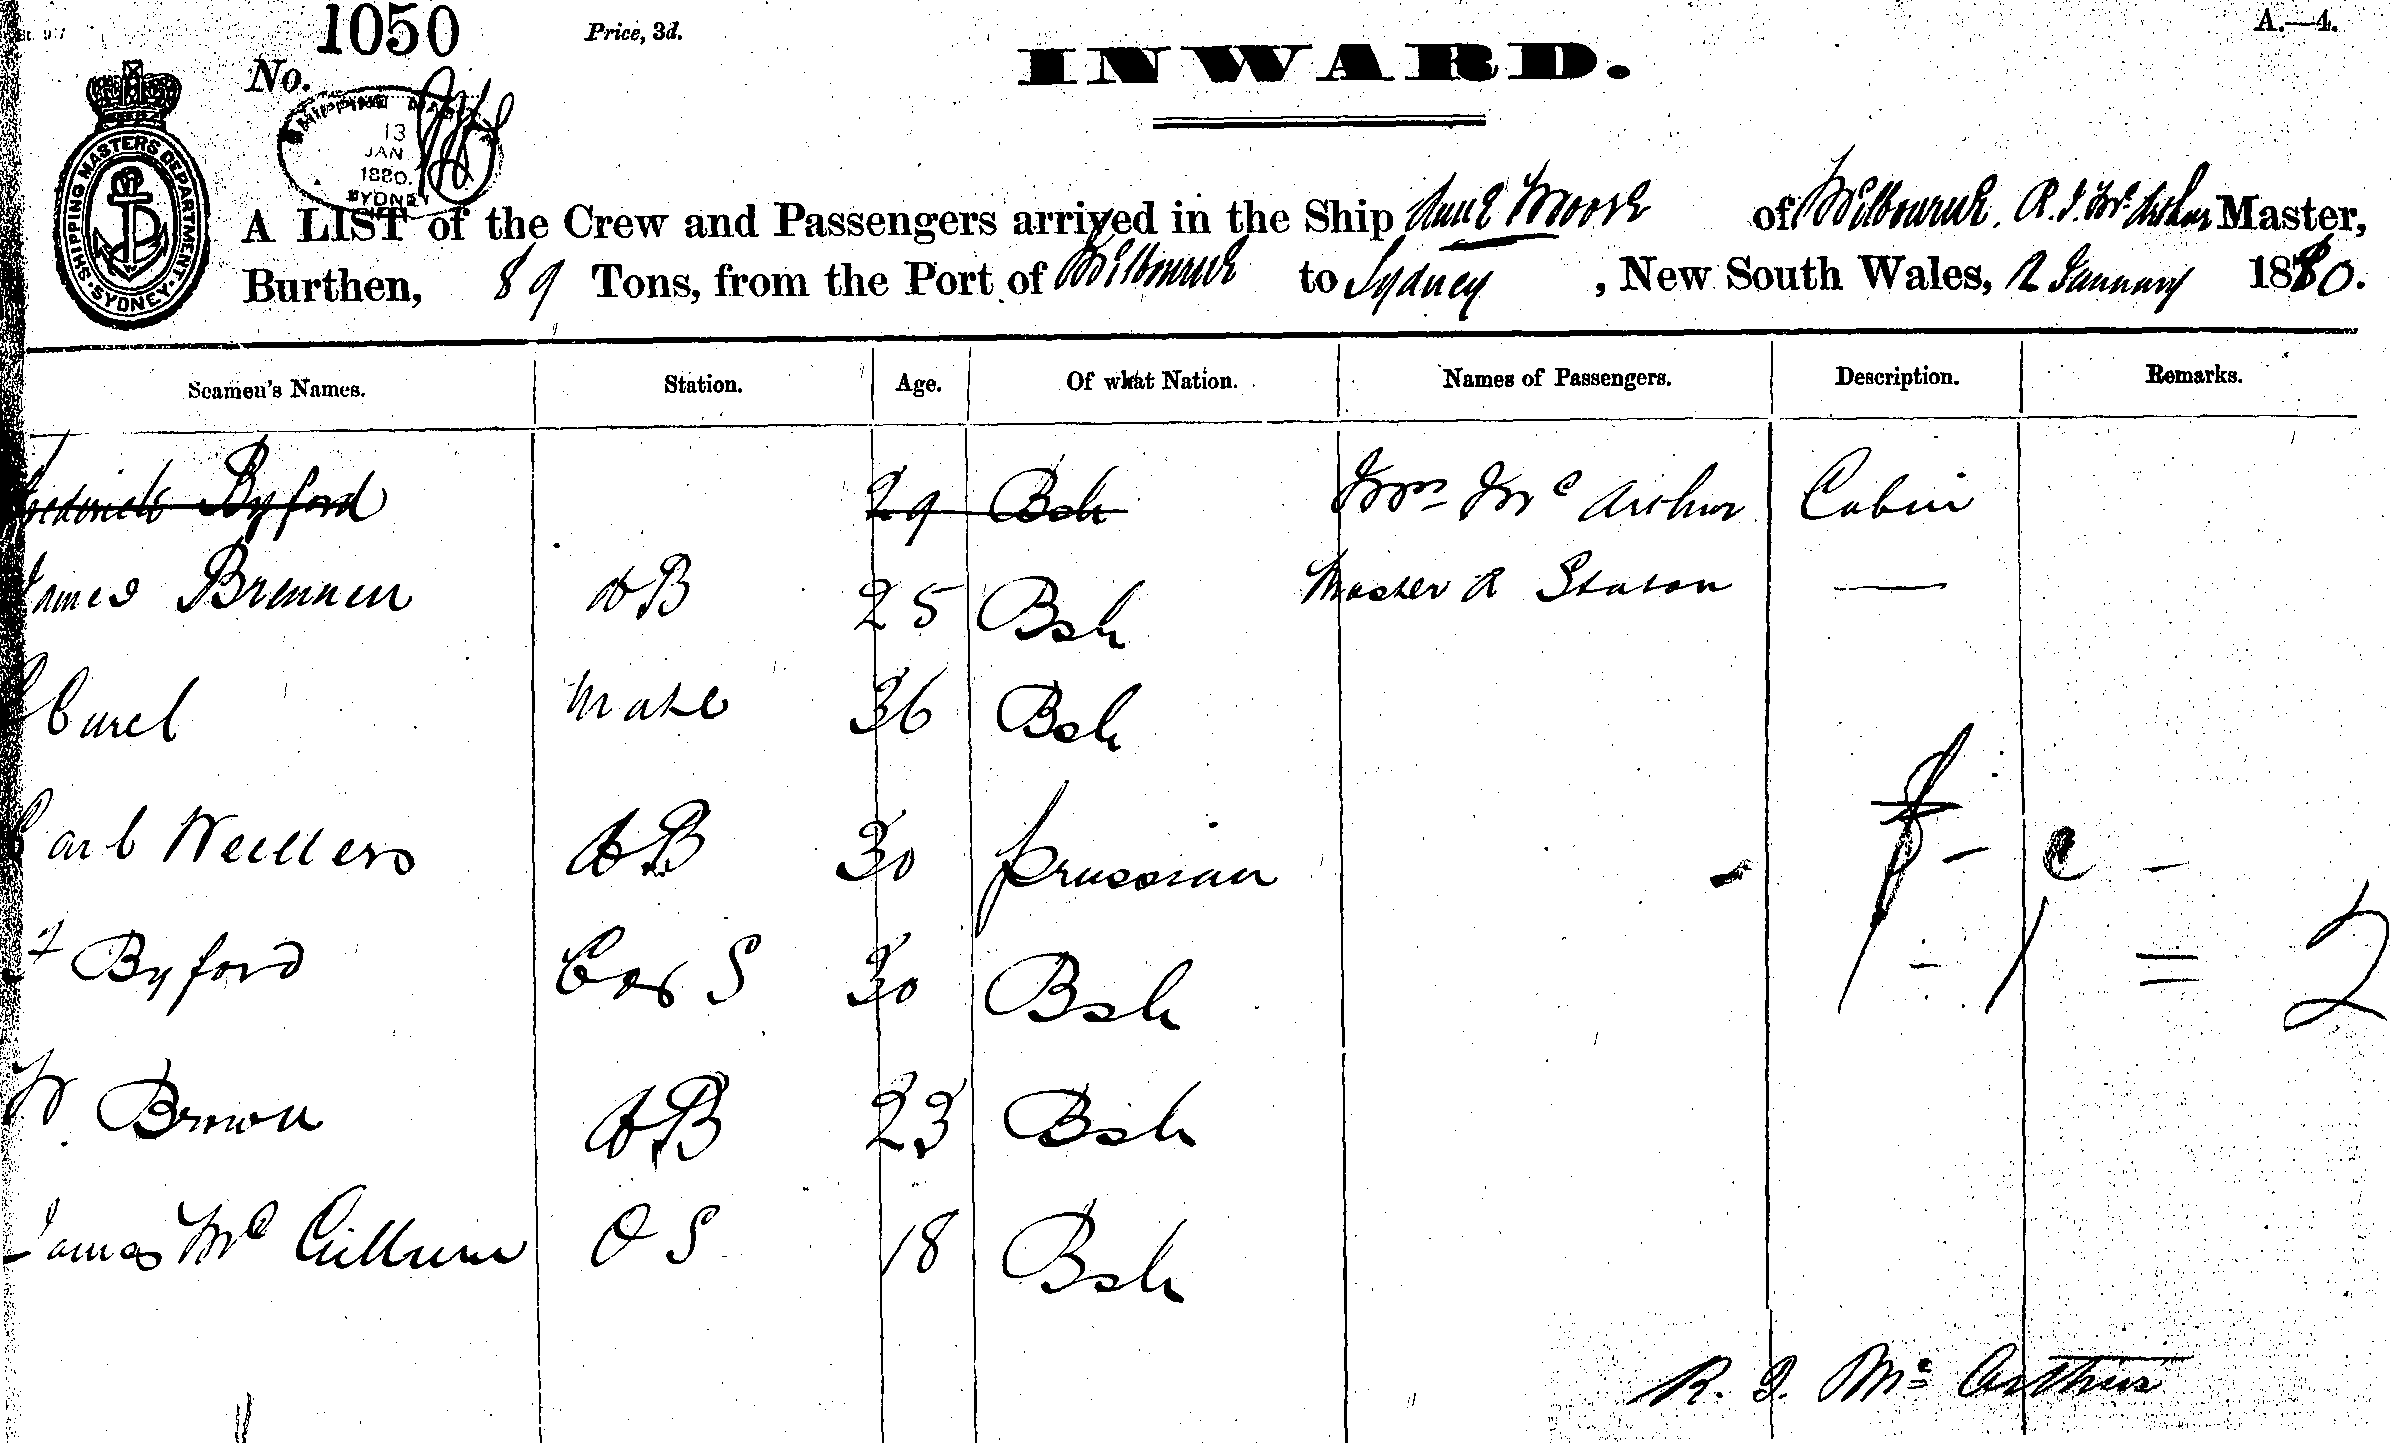 1050 Price, 3d. A.—4.
No. INWARD.
SHIPPING MASTERS DEPARTMENT SYDNEY
SHIPPING MAST
13
JAN
1880.
SYDNEY
A LIST of the Crew and Passengers arrived in the Ship Anne Moore of Melbourne. R. J. McArthur Master,
Burthen, 89 Tons, from the Port of Melbourne to Sydney, New South Wales, 12 January 1880.
Seamen's Names. Station. Age. Of what Nation. Names of Passengers. Description. Remarks.
Frederick Byford 29 Bsh Mrs McArthur Cabin
James Brennen AB 25 Bsh Master R Stason —
Mate 36 Bsh
Carl AB 30 Prussian
F Byford S 30 Bsh
P - C -
1 - 1 = 2
W Brown AB 23 Bsh
James Mc OS 18 Bsh
R. J. McArthur